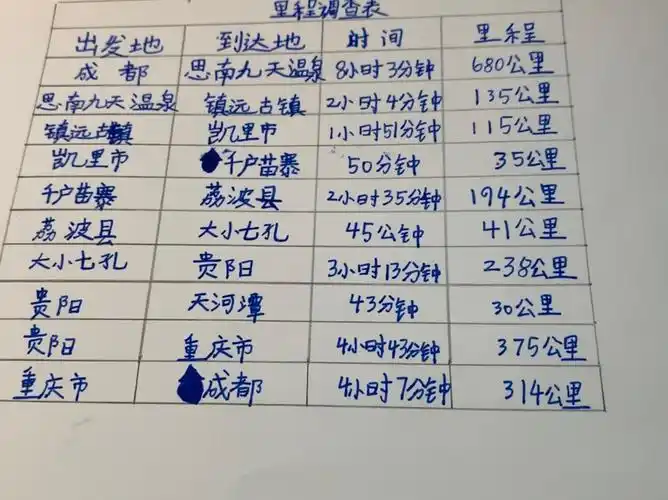 里程调查表
出发地 到达地 时间 里程
成都 思南九天温泉 8小时3分钟 680公里
思南九天温泉 镇远古镇 2小时4分钟 135公里
镇远古镇 凯里市 1小时51分钟 115公里
凯里市 千户苗寨 50分钟 35公里
千户苗寨 荔波县 2小时35分钟 194公里
荔波县 大小七孔 45分钟 41公里
大小七孔 贵阳 3小时13分钟 238公里
贵阳 天河潭 43分钟 30公里
贵阳 重庆市 4小时43分钟 375公里
重庆市 成都 4小时7分钟 314公里